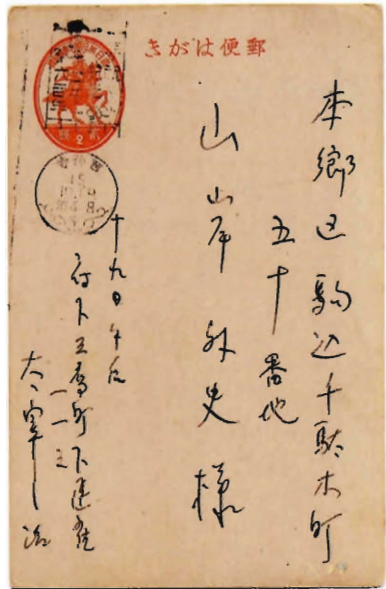 郵便はがき
本郷区駒込千駄木町
五十番地
山岸外史様
十九日午后
府下三鷹町下連雀
一一三
太宰治
2